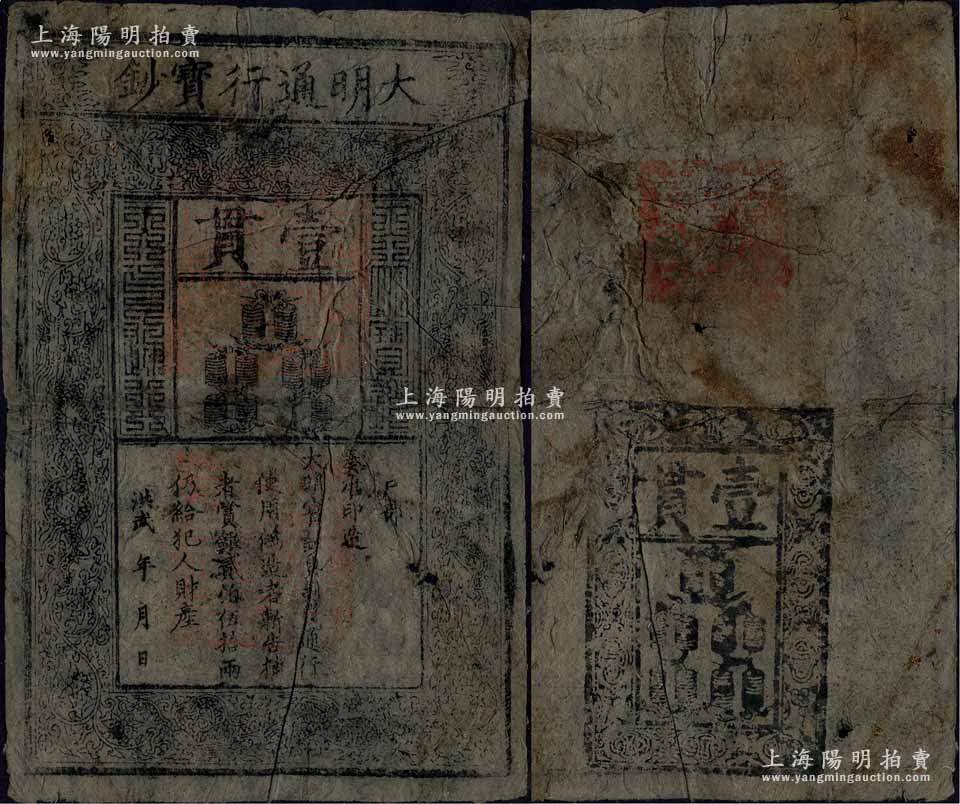 上海陽明拍賣
www.yangmingauction.com
大明通行寶鈔
壹貫
户部
奏准印造
大明寶鈔與銅錢通行
使用偽造者斬告捕
者賞銀貳伯伍拾兩
仍給犯人財產
洪武 年 月 日
上海陽明拍賣
www.yangmingauction.com
壹貫
上海陽明拍賣
www.yangmingauction.com